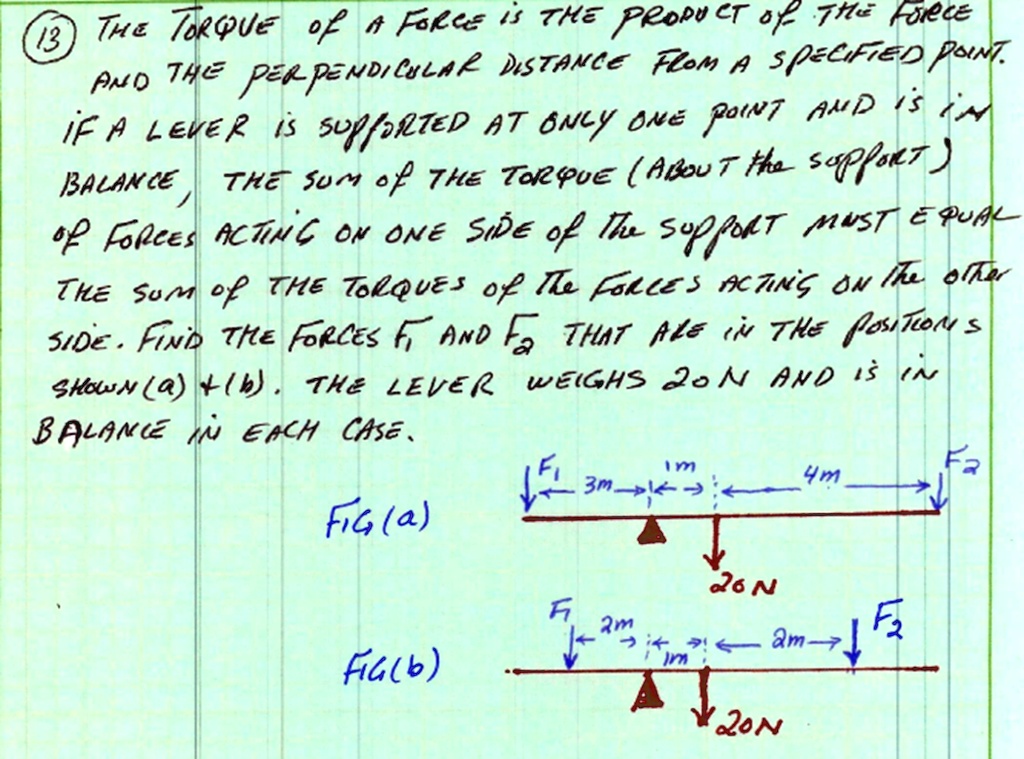 13 THE TORQUE of A FORCE is THE PRODUCT of THE FORCE
AND THE PERPENDICULAR DISTANCE FROM A SPECIFIED POINT.
iF A LEVER is SUPPORTED AT ONLY ONE POINT AND is iN
BALANCE, THE SUM of THE TORQUE (ABOUT the SUPPORT)
of FORCES ACTING ON ONE SIDE of The SUPPORT MUST EQUAL
THE SUM of THE TORQUES of The FORCES ACTING ON The other
SIDE. FIND THE FORCES F1 AND F2 THAT ARE IN THE POSITIONS
SHOWN (a) + (b). THE LEVER WEIGHS 20N AND is iN
BALANCE iN EACH CASE.
F1 3m 1m 4m F2
FIG (a)
20N
F1 2m 1m 2m F2
FIG (b)
20N